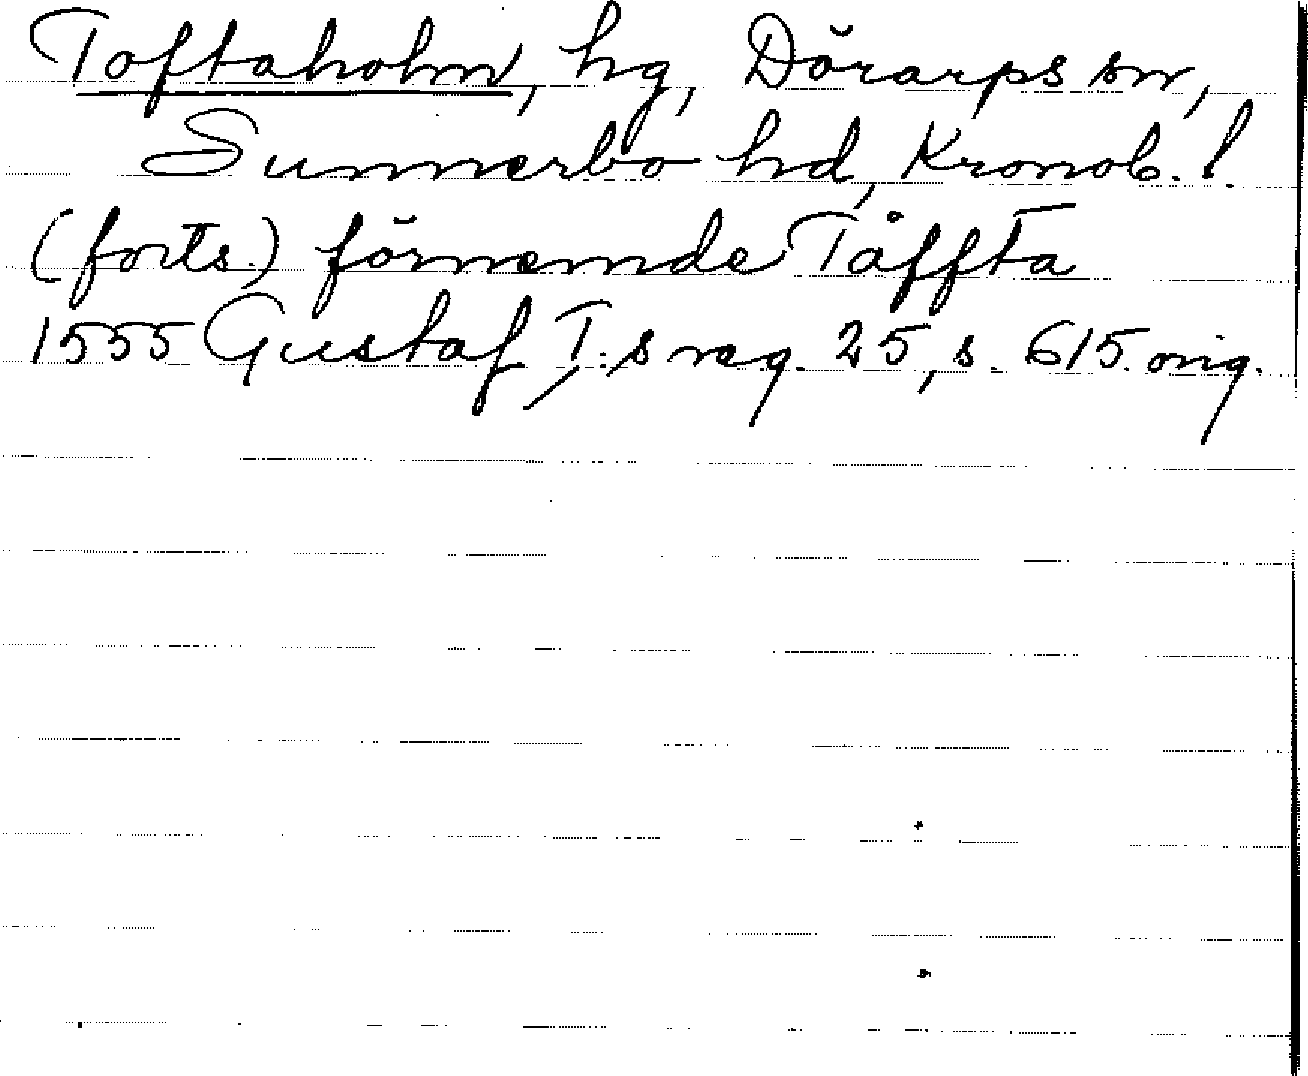 Toftaholm, hg, Dörarps sn,
Sunnerbo hd, Kronob. l.
(forts.) förnemde Tåffta
1555 Gustaf I:s reg. 25, s. 615. orig.